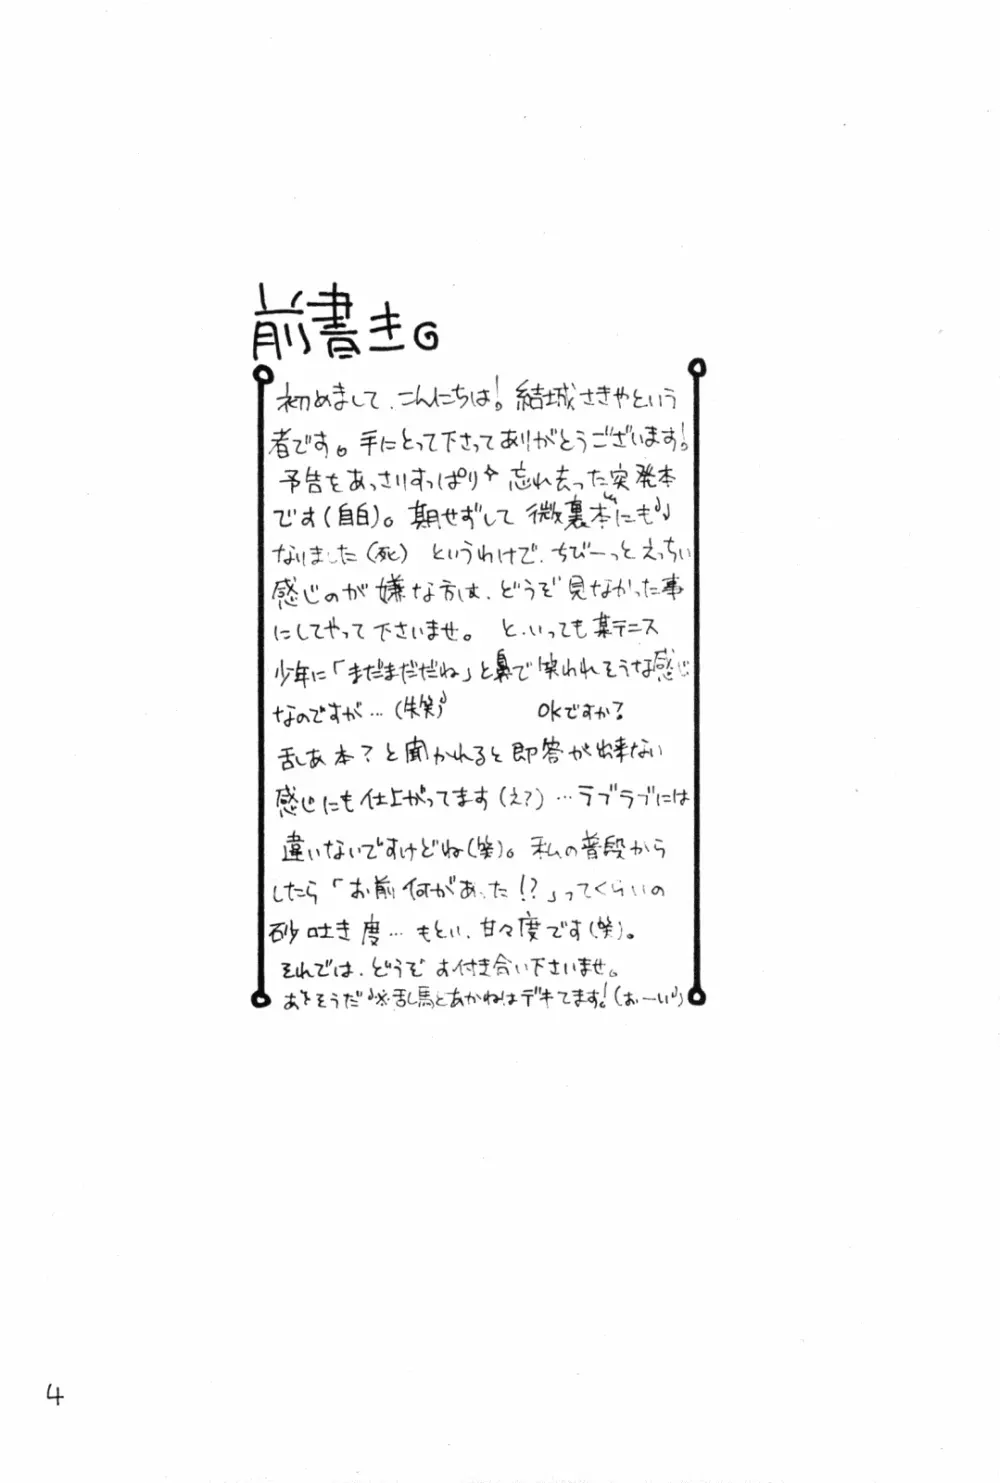 前書き。
初めまして、こんにちは！結城さきやという
者です。手にとって下さってありがとうございます！
予告をあっさりすっぱり忘れ去った突発本
です(自白)。期せずして微裏本にも
なりました(死) というわけで、ちびーっとえっちぃ
感じのが嫌な方は、どうぞ見なかった事
にしてやって下さいませ。 と、いっても某テニス
少年に「まだまだだね」と鼻で笑われそうな感じ
なのですが…(失笑) OKですか？
乱あ本？と聞かれると即答が出来ない
感じにも仕上がってます(え？)…ラブラブには
違いないですけどね(笑)。私の普段から
したら「お前何があった!？」ってくらいの
砂吐き度…もとい、甘々度です(笑)。
それでは、どうぞお付き合い下さいませ。
あ、そうだ ※乱馬とあかねはデキてます！(おーい)
4